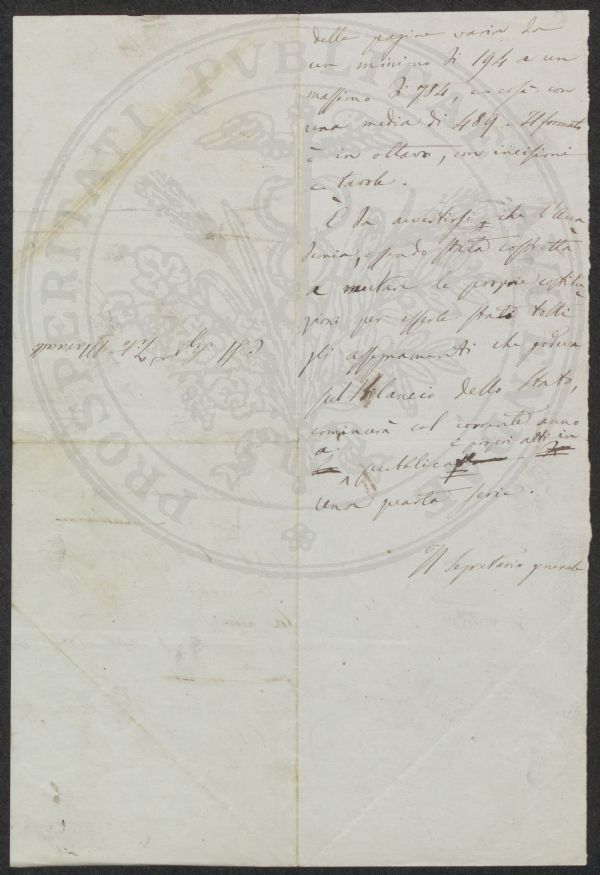 delle pagine varia da
un minimo di 194 a un
massimo di 784, e così con
una media di 489. Il formato
è in ottavo, con incisioni
e tavole.
È da avvertirsi che l'Acca
demia, essendo stata costretta
a mutare le proprie costitu
zioni per essere stati tolti
gli assegnamenti che godeva
sul bilancio dello Stato,
comincerà col corrente anno
a pubblicare i propri atti in
una quarta serie.
Il Segretario generale
Al Sig.r
PROSPERITATI PUBLICAE